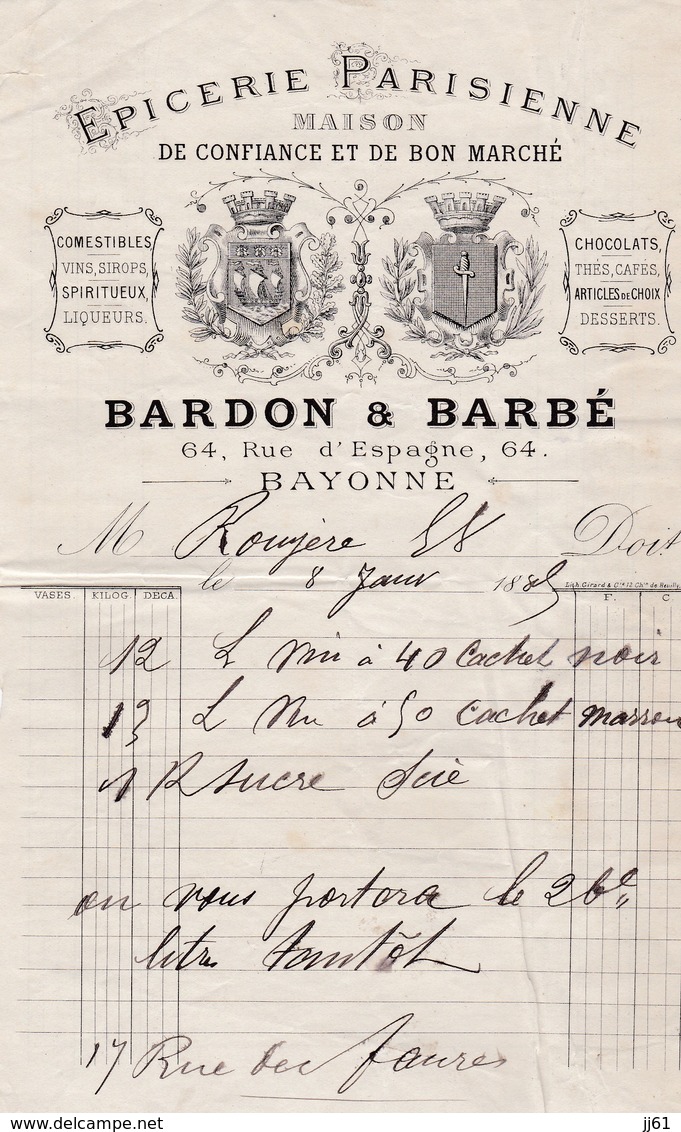 EPICERIE PARISIENNE
MAISON
DE CONFIANCE ET DE BON MARCHÉ
COMESTIBLES,
VINS, SIROPS,
SPIRITUEUX,
LIQUEURS.
CHOCOLATS,
THÉS, CAFÉS,
ARTICLES DE CHOIX
DESSERTS.
BARDON & BARBÉ
64, Rue d'Espagne, 64.
BAYONNE
M Rouyère Doit
le 8 Janv 1885
Lith. Girard & Cie
VASES. KILOG. DECA. F. C.
12 L vin à 40 Cachet noir
13 L vin à 50 Cachet marron
1 K sucre scié
on vous portera le 2
litres tantôt
17 Rue des Faures
delcampe.net
jj61